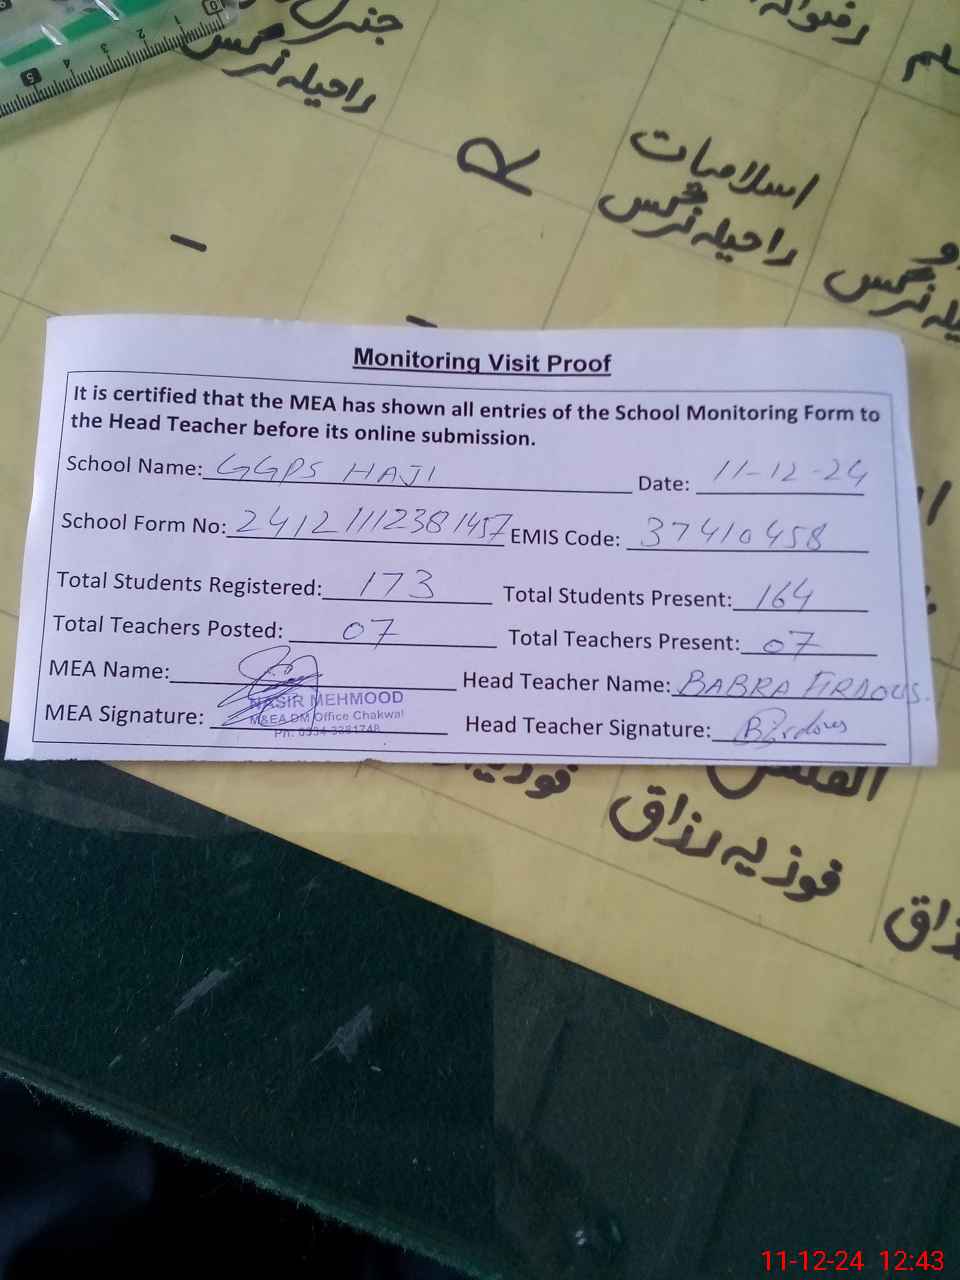 0 1 2 3 4 5
جنرل
راحیلہ نرگس
R
اسلامیات
راحیلہ نرگس
Monitoring Visit Proof
It is certified that the MEA has shown all entries of the School Monitoring Form to
the Head Teacher before its online submission.
School Name: GGPS HAJI Date: 11-12-24
School Form No: 24121112381457 EMIS Code: 37410458
Total Students Registered: 173 Total Students Present: 164
Total Teachers Posted: 07 Total Teachers Present: 07
MEA Name: Head Teacher Name: BABRA FIRDOUS.
NASIR MEHMOOD
MEA Signature: M&EA DM Office Chakwal Head Teacher Signature: B Firdous
فوزیہ رزاق
11-12-24 12:43